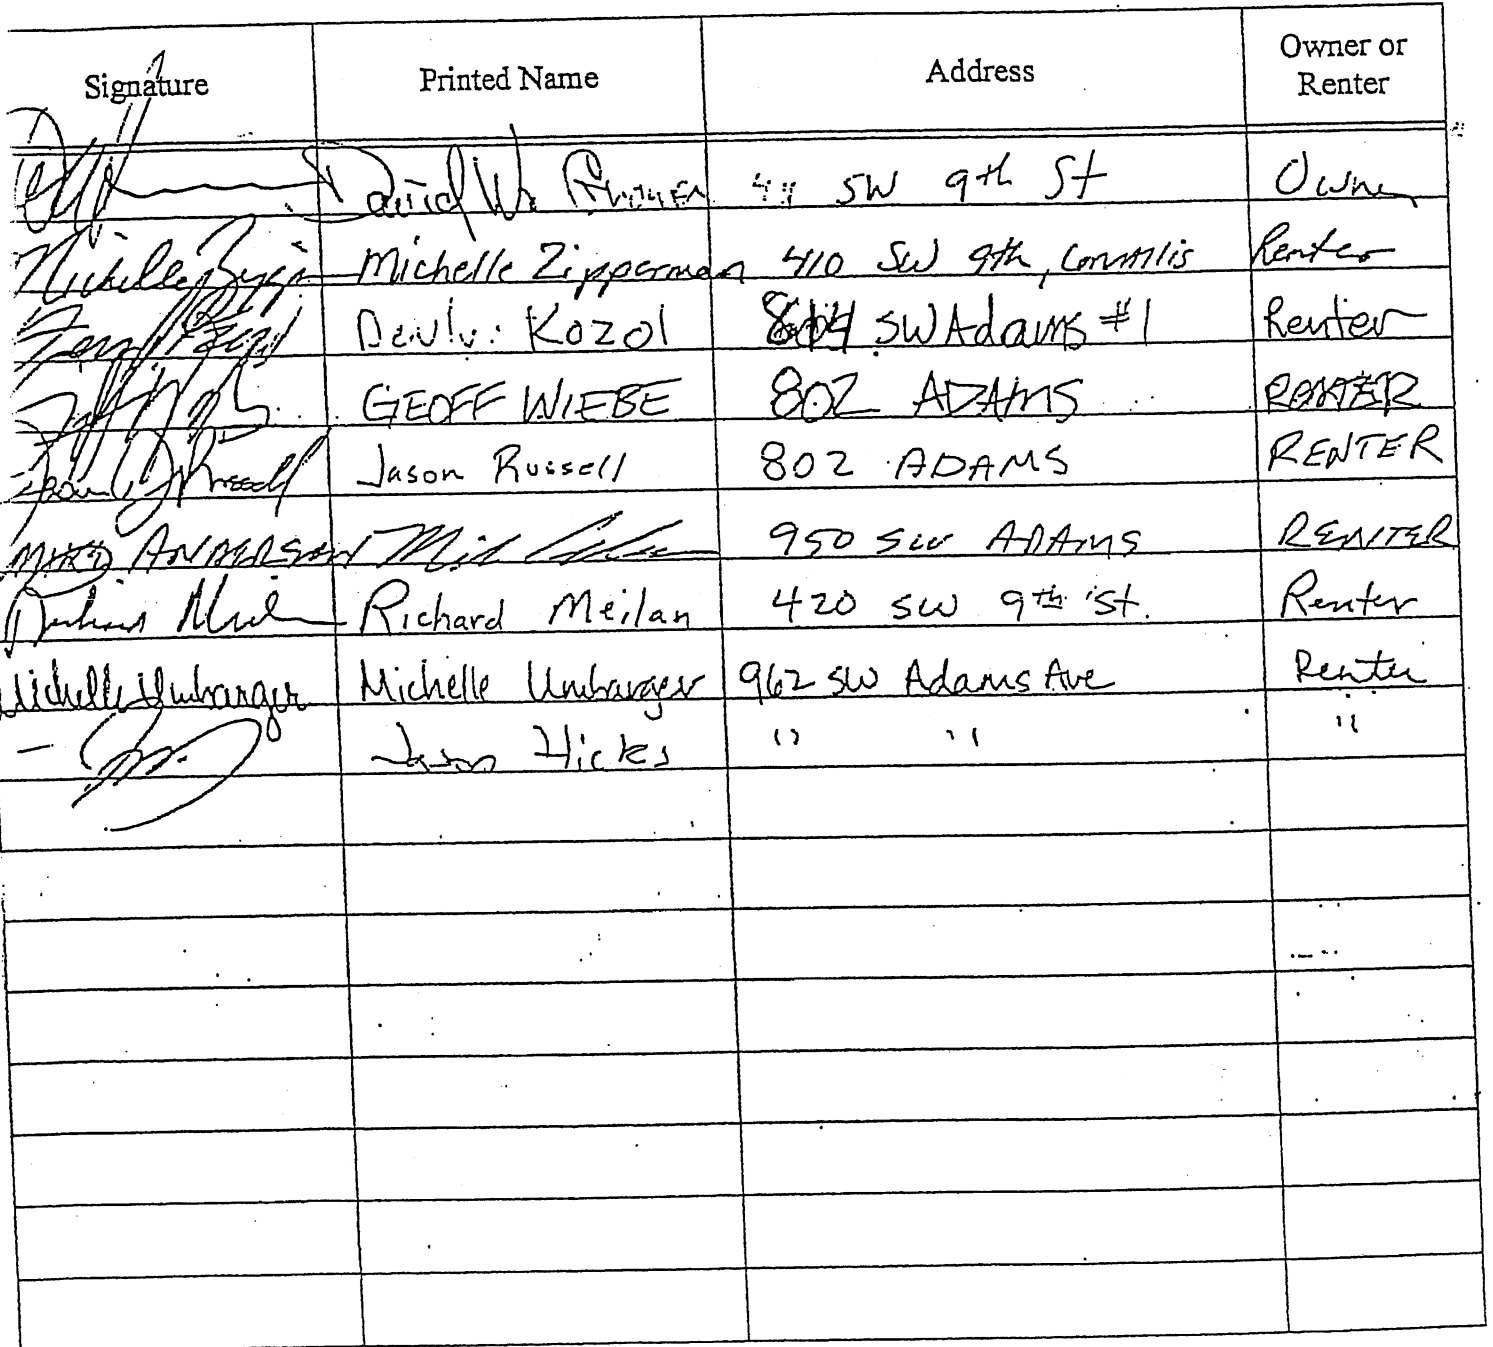 Signature Printed Name Address Owner or Renter
David W. SW 9th St Owner
Michelle Zipperman 410 SW 9th, Corvallis Renter
Kozol SW Adams #1 Renter
GEOFF WIEBE 802 ADAMS RENTER
Jason Russell 802 ADAMS RENTER
MIKE ANDERSON 950 SW ADAMS RENTER
Richard Meilan 420 SW 9th St. Renter
Michelle Umbarger Michelle Umbarger 962 SW Adams Ave Renter
Jason Hicks " " "